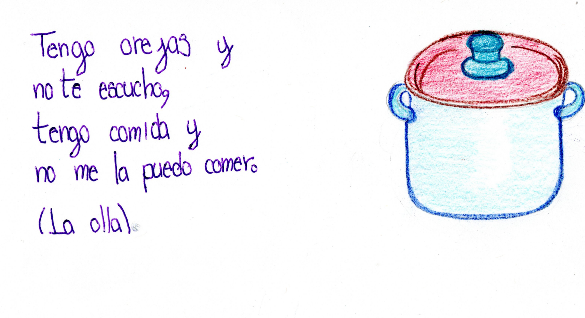 Tengo orejas y
no te escucho,
tengo comida y
no me la puedo comer.
(La olla).